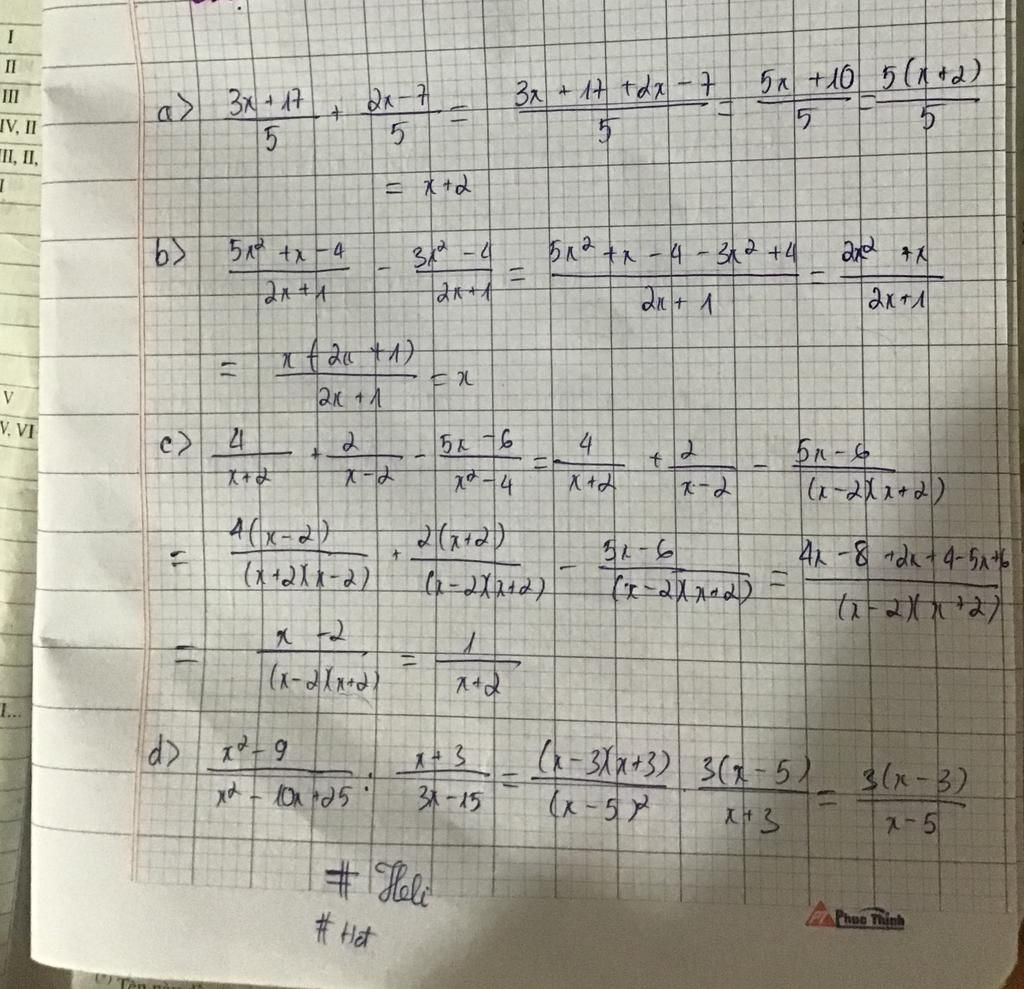 I
II
III
IV, II
III, II,
I
V
V, VI
I...
a> (3x+17)/5 + (2x-7)/5 = (3x + 17 + 2x - 7)/5 = (5x + 10)/5 = 5(x+2)/5
= x+2
b> (5x² + x - 4)/(2x+1) - (3x² - 4)/(2x+1) = (5x² + x - 4 - 3x² + 4)/(2x + 1) = (2x² + x)/(2x+1)
= x(2x + 1)/(2x+1) = x
c> 4/(x+2) + 2/(x-2) - (5x - 6)/(x² - 4) = 4/(x+2) + 2/(x-2) - (5x - 6)/((x-2)(x+2))
= 4(x-2)/((x+2)(x-2)) + 2(x+2)/((x-2)(x+2)) - (5x - 6)/((x-2)(x+2)) = (4x - 8 + 2x + 4 - 5x + 6)/((x-2)(x+2))
= (x - 2)/((x-2)(x+2)) = 1/(x+2)
d> (x² - 9)/(x² - 10x + 25) : (x + 3)/(3x - 15) = (x-3)(x+3)/(x-5)² . 3(x-5)/(x+3) = 3(x-3)/(x-5)
# Heli
# Het
PT Phuc Thinh